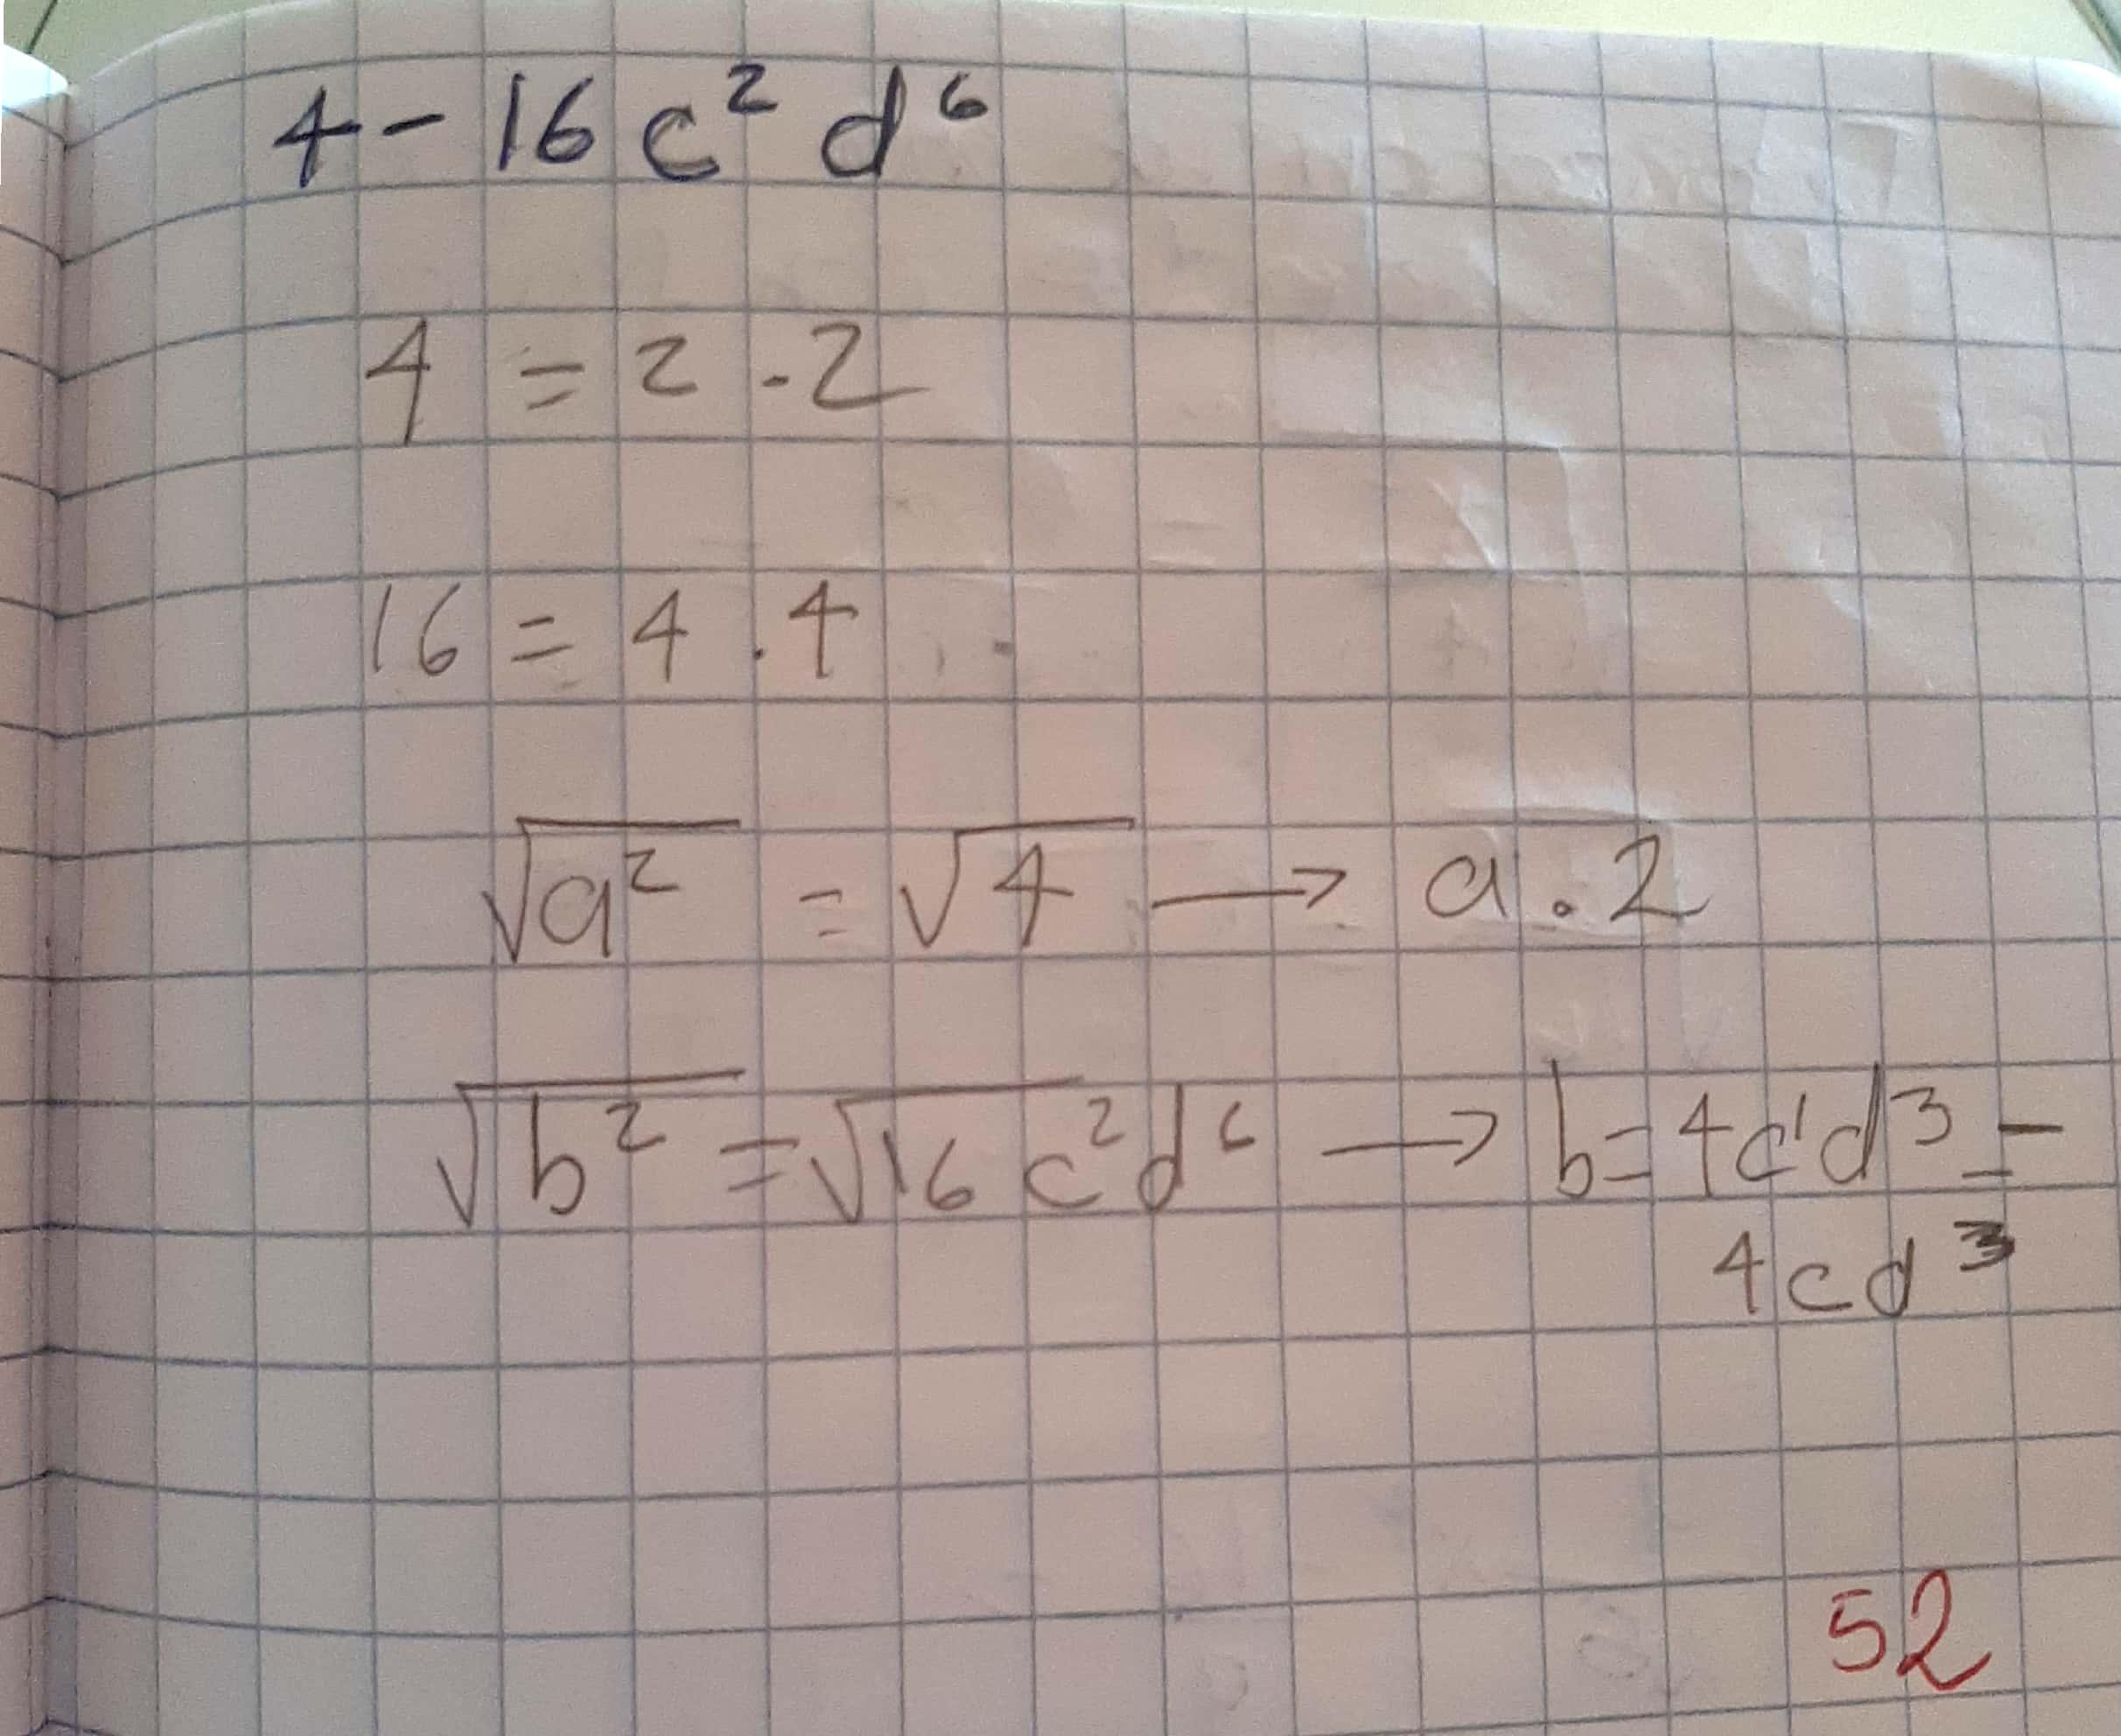 4 - 16 c² d⁶
4 = 2 . 2
16 = 4 . 4
√a² = √4 → a . 2
√b² = √16 c² d⁶ → b = 4c¹d³ = -
4cd³
52